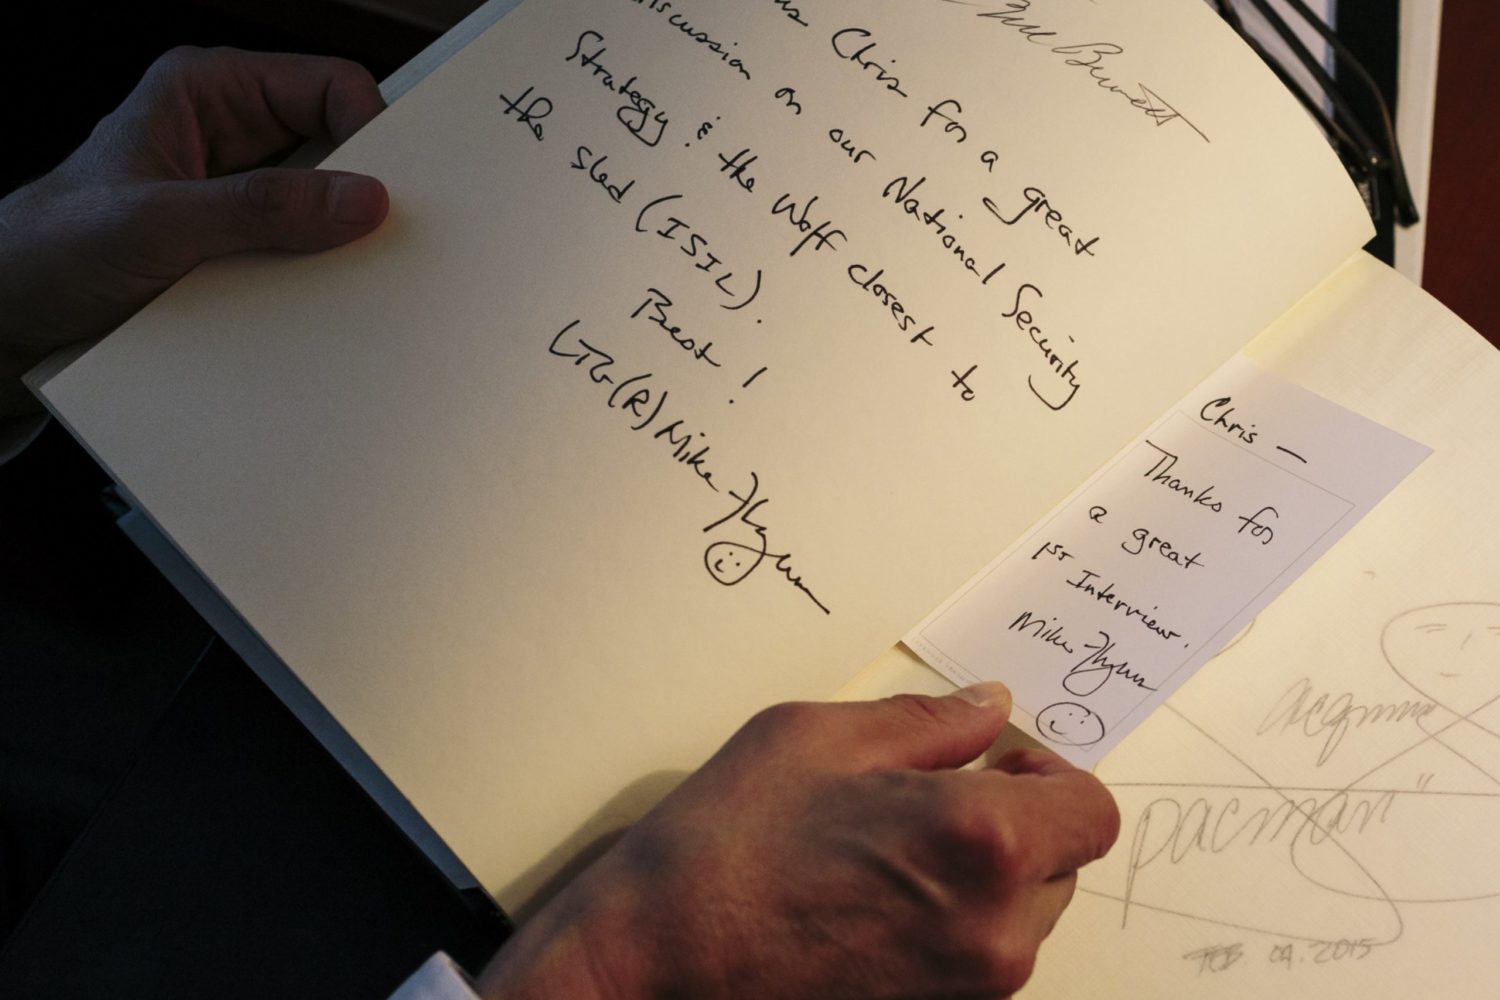 Bennett
Chris for a great
iscussion on our National Security
Strategy & the Wolf closest to
the sled (ISIL).
Best !
LTG(R) Mike Flynn
Chris —
Thanks for
a great
1st Interview.
Mike Flynn
"pacman"
FEB 04. 2015